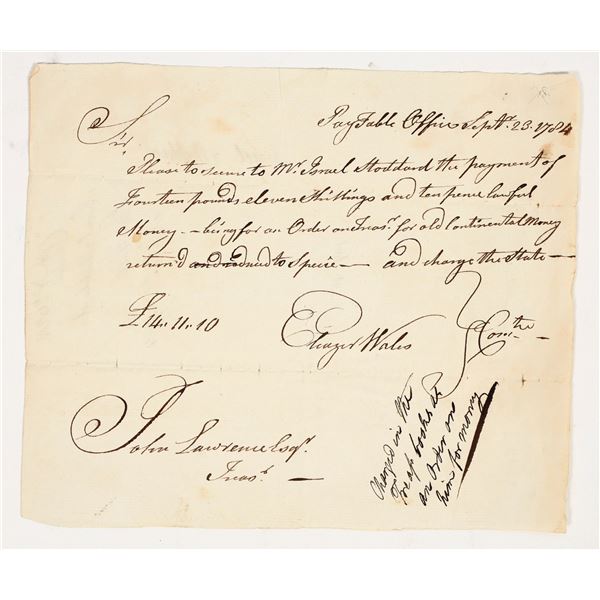 Pay Table Office Septr. 23. 1784
Sir,
Please to secure to Mr. Israel Stoddard the payment of
Fourteen pounds eleven Shillings and ten pence lawful
Money — being for an Order on Treasr. for old Continental Money
return'd and reduced to Specie — and charge the State —
£14„11„10
Eleazer Wales } Comtee —
John Lawrence Esqr.
Treasr. —
Charged in the
Treas books as
an Order on
him for money